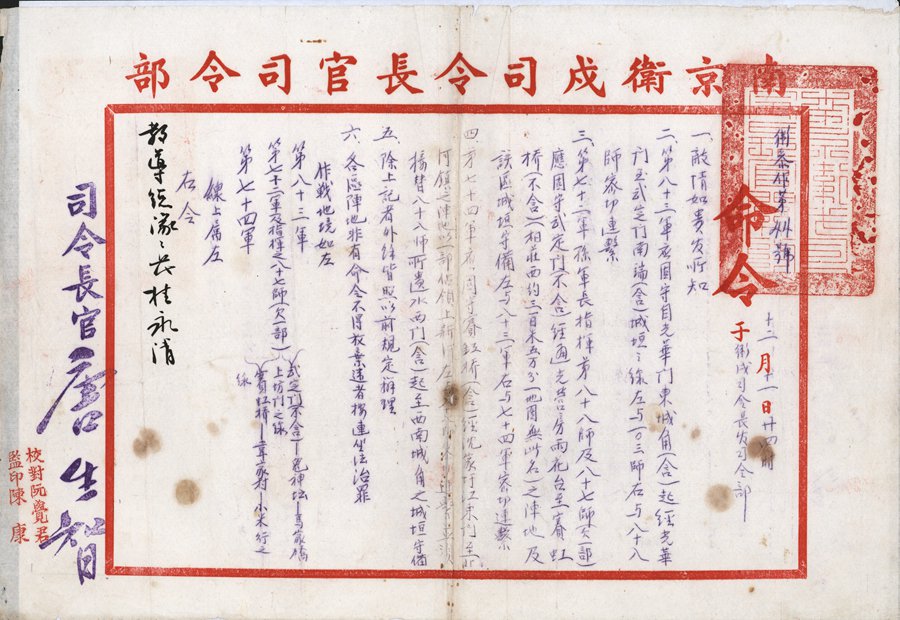 南京衛戍司令長官司令部
命令
十二月十一日廿四時
于衛戍司令長官司令部
一、敵情如貴官所知
二、第八十三軍應固守自光華門東城角(含)起經光華
門至武定門南端(含)城垣之線左與一〇三師右與八十八
師密切連繫
三、第七十二軍孫軍長指揮第八十八師及八十七師(欠一部)
應固守武定門(不含)經通光營房雨花台至賽虹
橋(不含)(相莊西約三百米五万分一地圖無此名)之陣地及
該區城垣守備左與八十三軍右與七十四軍密切連繫
四、第七十四軍應固守賽虹橋(含)經沈家圩江東門至
河鎮之陣地以一部佔領上新河
接替八十八師所遺水西門(含)起至西南城角之城垣守備
五、除上記者外餘皆照以前規定辦理
六、各該陣地非有命令不得放棄違者按連坐法治罪
作戰地境如左
第八十三軍
第七十二軍及指揮之八十七師(欠一部)
第七十四軍
線上屬左
右令
教導總隊總隊長桂永清
司令長官唐生智
校對阮覺君
監印陳康